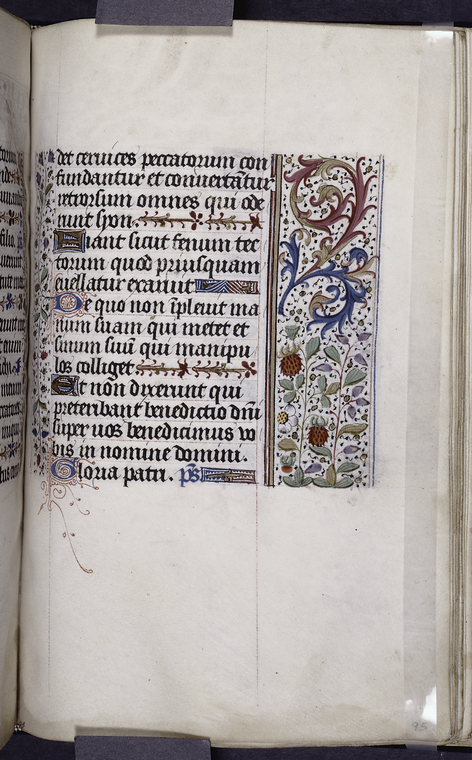 det ceruices peccatorum con
fundantur et conuertātur
retrorsum omnes qui ode
runt syon.
Fiant sicut fenum tec
torum quod priusquam
euellatur exaruit
De quo non īpleuit ma
num suam qui metet et
sinum suū qui manipu
los colliget
Et non dixerunt qui
preteribant benedictio dn̄i
super uos benedicimus vo
bis in nomine domini.
Gloria patri. ps̄